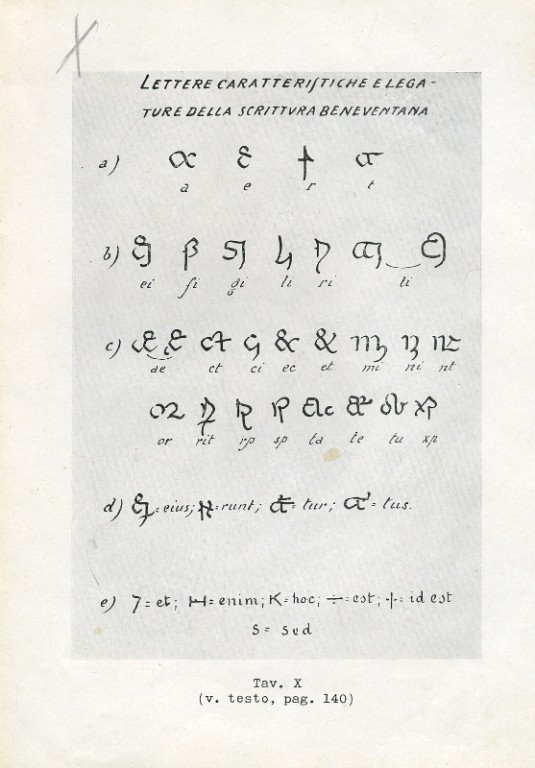 LETTERE CARATTERISTICHE E LEGA-
TURE DELLA SCRITTURA BENEVENTANA
a)
a e r t
b)
ei fi gi li ri ti
c)
ae ct ci ec et mi ni nt
or rit rp sp ta te tu xp
d) = eius; = runt; = tur; = tus.
e) 7 = et; = enim; K = hoc; ÷ = est; = id est
s = sed
Tav. X
(v. testo, pag. 140)